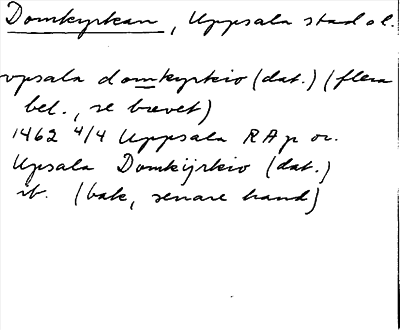 Domkyrkan, Uppsala stad ol.
vpsala domkyrkio (dat.) (flera
bel., se brevet)
1462 4/4 Uppsala RAp or.
Upsala Domkijrkio (dat.)
ib. (bak, senare hand)